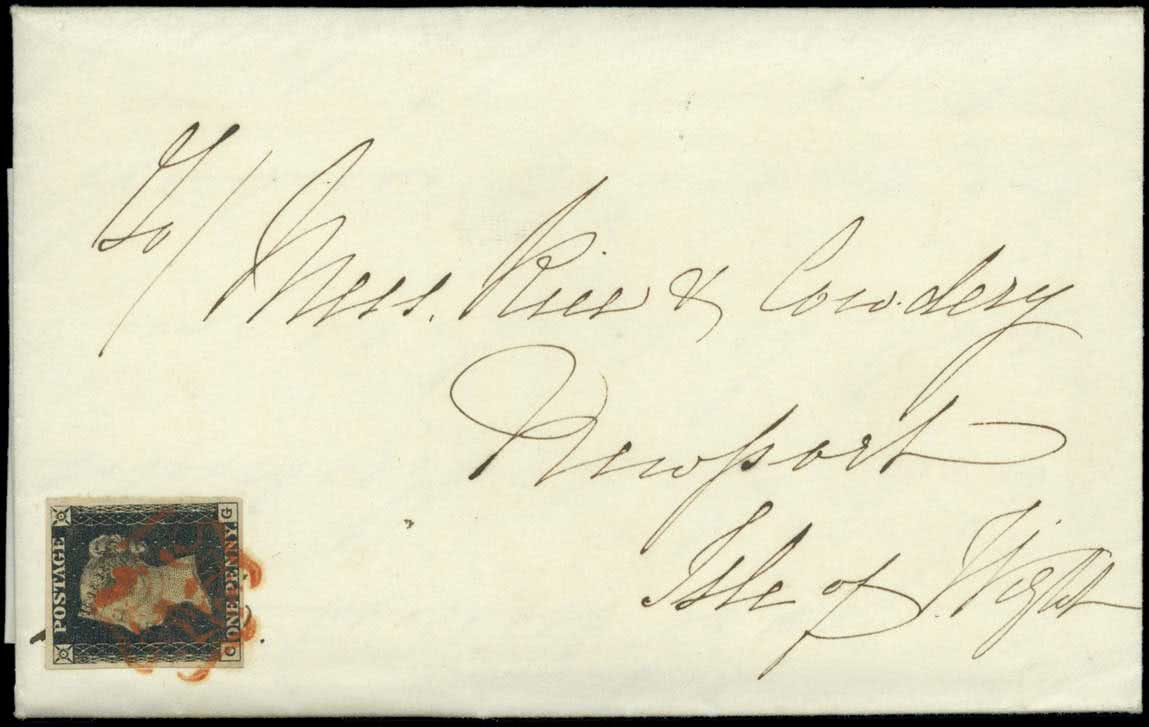 To/ Mess. Rice & Cowdery
Newport
Isle of Wight
POSTAGE
ONE PENNY
C G